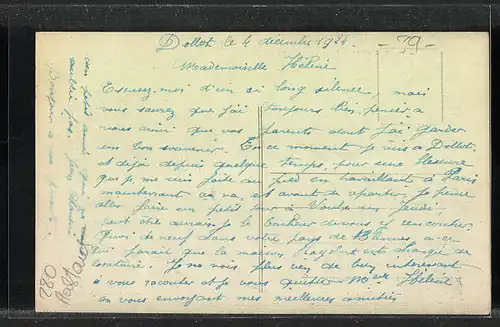 Dollot le 4 décembre 1924
- 79 -
Mademoiselle Hélène
Excusez-moi d'un si long silence, mais
vous saurez que j'ai toujours bien pensé à
vous ainsi que vos parents dont j'ai garder
un bon souvenir. En ce moment je suis à Dollot
et déjà depuis quelque temps, pour une blessure
que je me suis faite au pied en travaillant à Paris
maintenant ça va, et avant de repartir je pense
aller faire un petit tour à Voulx un jeudi,
peut être aurais-je le bonheur de vous y rencontrer
Quoi de neuf dans votre pays de Blennes à ce
qui parait que la maison est changée de
locataire. Je ne vois plus rien de bien intéressant
à vous raconter et je vous quitte Melle Hélène
en vous envoyant mes meilleures amitiés
un petit ami qui ne vous
oublie pas.
Bonjour à vos
082